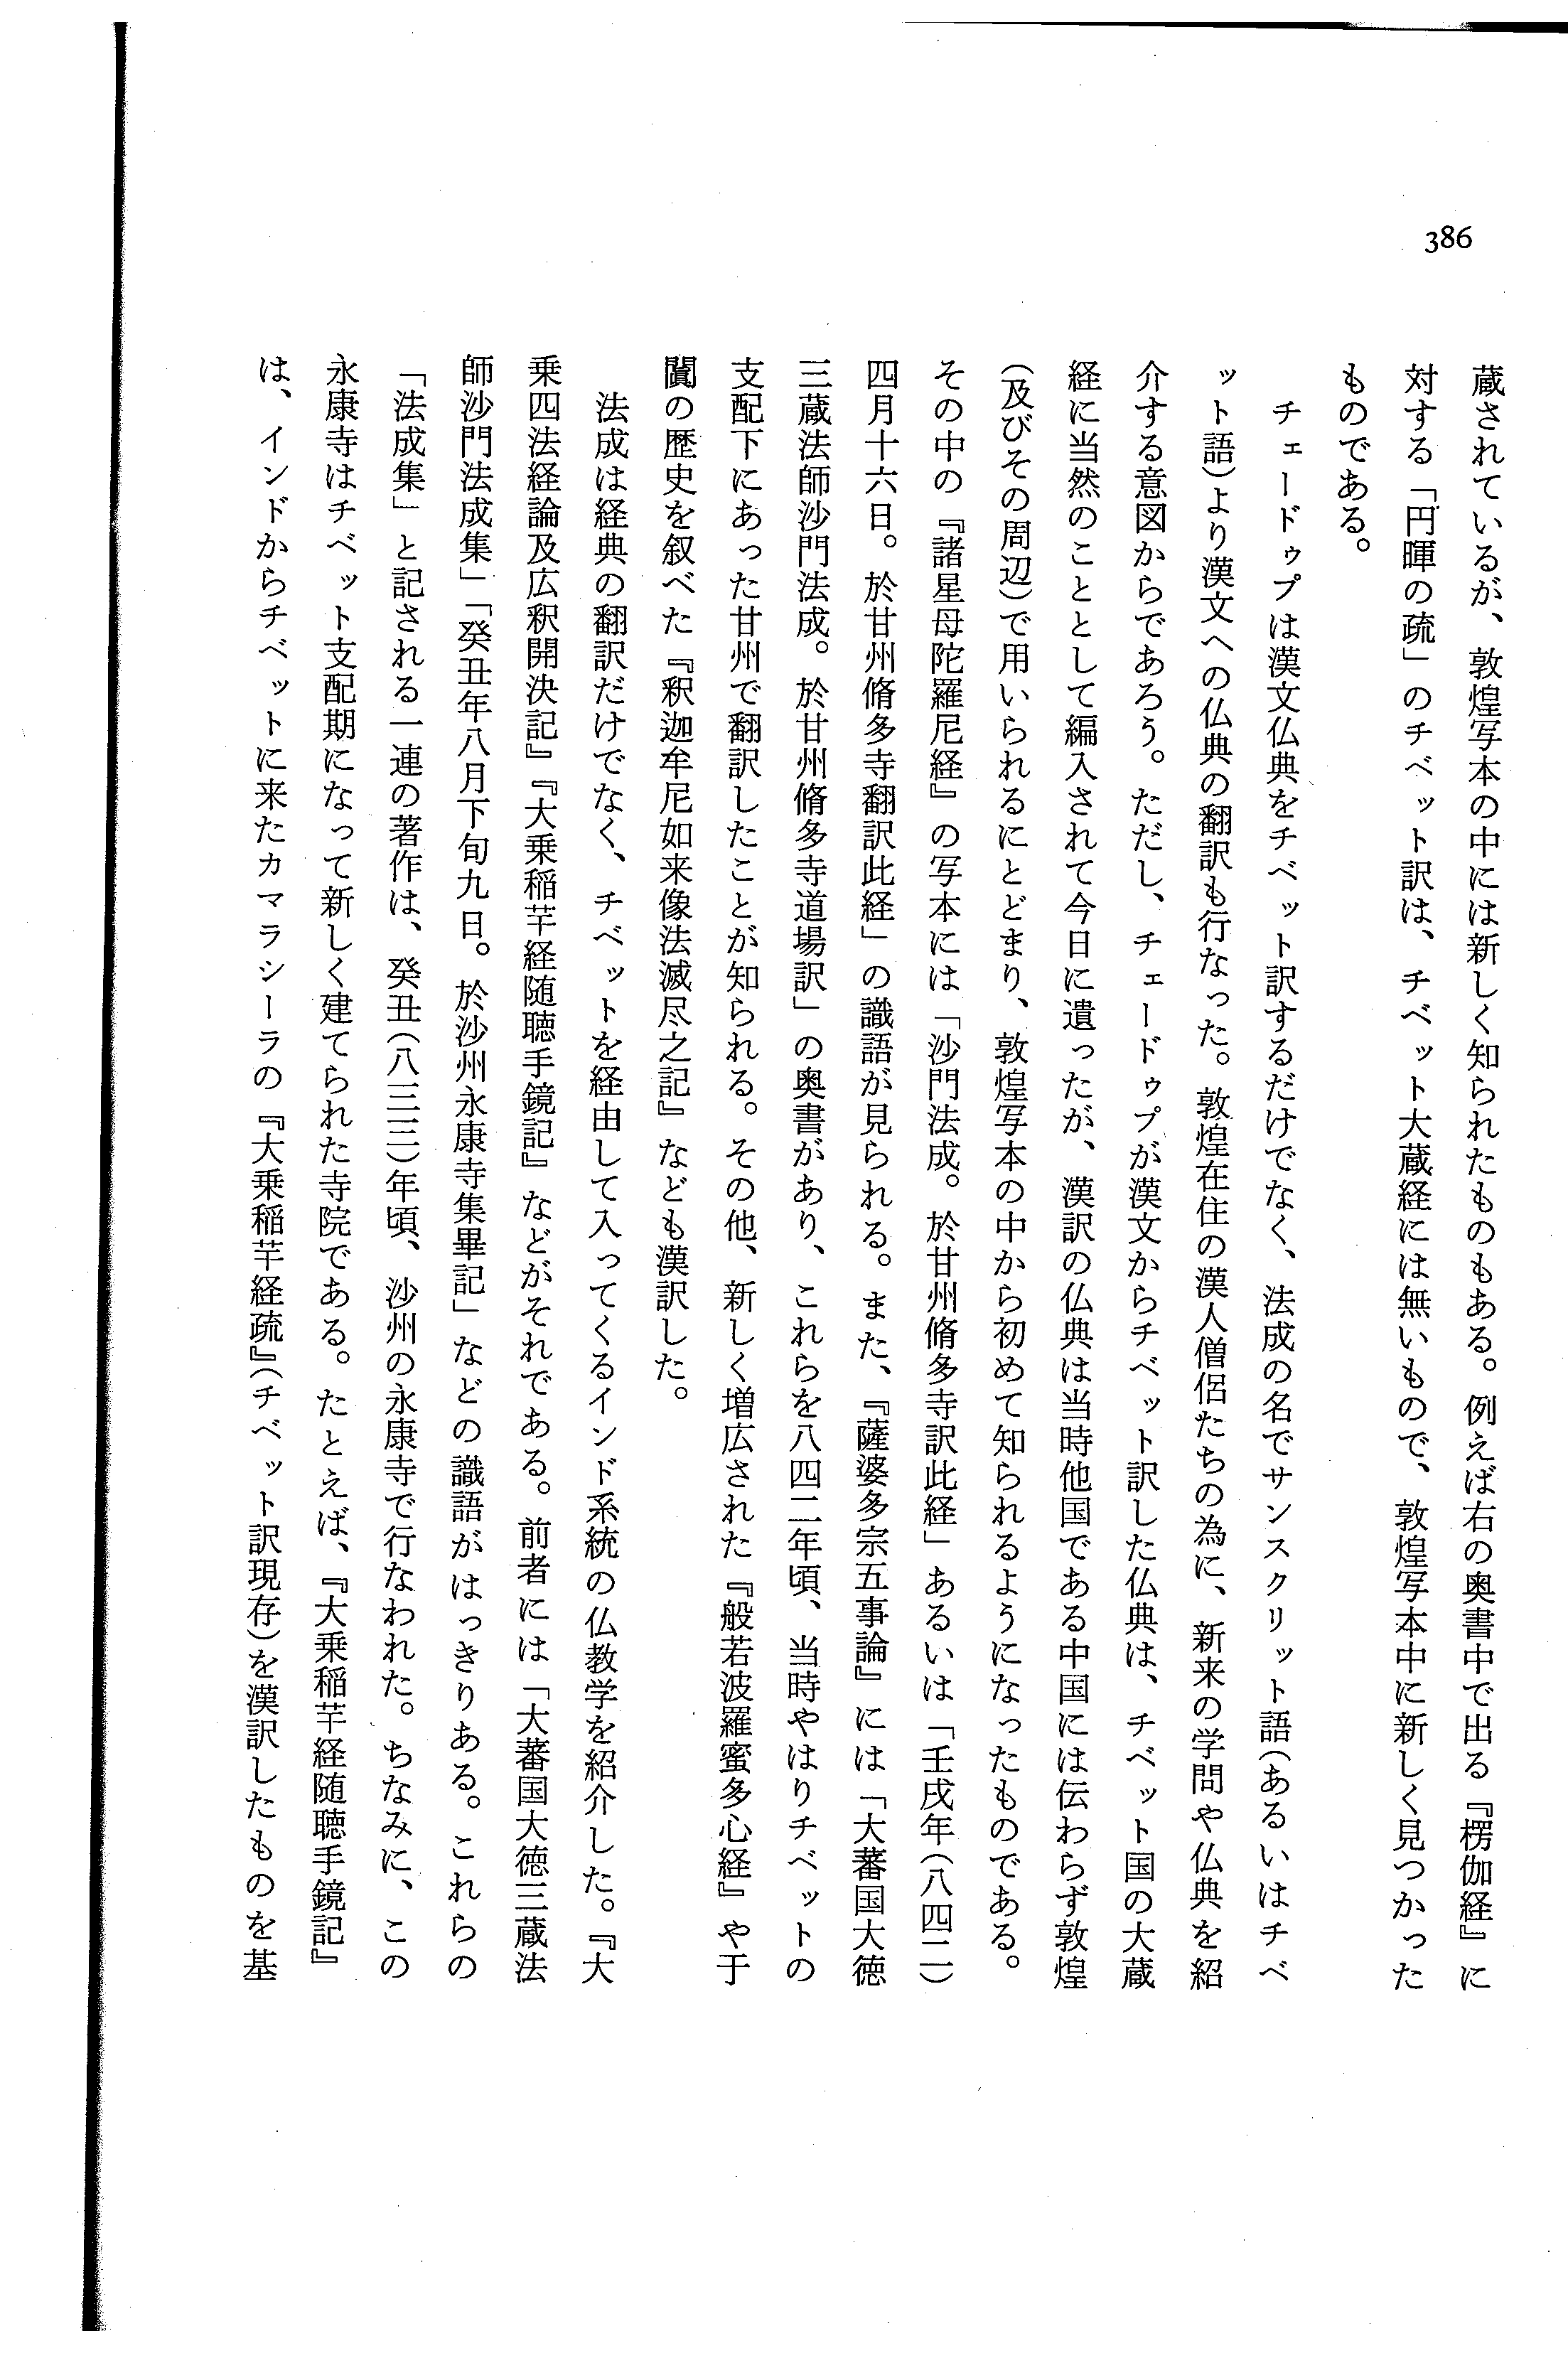 386
蔵されているが、敦煌写本の中には新しく知られたものもある。例えば右の奥書中で出る『楞伽経』に
対する「円暉の疏」のチベット訳は、チベット大蔵経には無いもので、敦煌写本中に新しく見つかった
ものである。
チェードゥプは漢文仏典をチベット訳するだけでなく、法成の名でサンスクリット語(あるいはチベ
ット語)より漢文への仏典の翻訳も行なった。敦煌在住の漢人僧侶たちの為に、新来の学問や仏典を紹
介する意図からであろう。ただし、チェードゥプが漢文からチベット訳した仏典は、チベット国の大蔵
経に当然のこととして編入されて今日に遺ったが、漢訳の仏典は当時他国である中国には伝わらず敦煌
(及びその周辺)で用いられるにとどまり、敦煌写本の中から初めて知られるようになったものである。
その中の『諸星母陀羅尼経』の写本には「沙門法成。於甘州脩多寺訳此経」あるいは「壬戌年(八四二)
四月十六日。於甘州脩多寺翻訳此経」の識語が見られる。また、『薩婆多宗五事論』には「大蕃国大徳
三蔵法師沙門法成。於甘州脩多寺道場訳」の奥書があり、これらを八四二年頃、当時やはりチベットの
支配下にあった甘州で翻訳したことが知られる。その他、新しく増広された『般若波羅蜜多心経』や于
闐の歴史を叙べた『釈迦牟尼如来像法滅尽之記』なども漢訳した。
法成は経典の翻訳だけでなく、チベットを経由して入ってくるインド系統の仏教学を紹介した。『大
乗四法経論及広釈開決記』『大乗稲芉経随聴手鏡記』などがそれである。前者には「大蕃国大徳三蔵法
師沙門法成集」「癸丑年八月下旬九日。於沙州永康寺集畢記」などの識語がはっきりある。これらの
「法成集」と記される一連の著作は、癸丑(八三三)年頃、沙州の永康寺で行なわれた。ちなみに、この
永康寺はチベット支配期になって新しく建てられた寺院である。たとえば、『大乗稲芉経随聴手鏡記』
は、インドからチベットに来たカマラシーラの『大乗稲芉経疏』(チベット訳現存)を漢訳したものを基